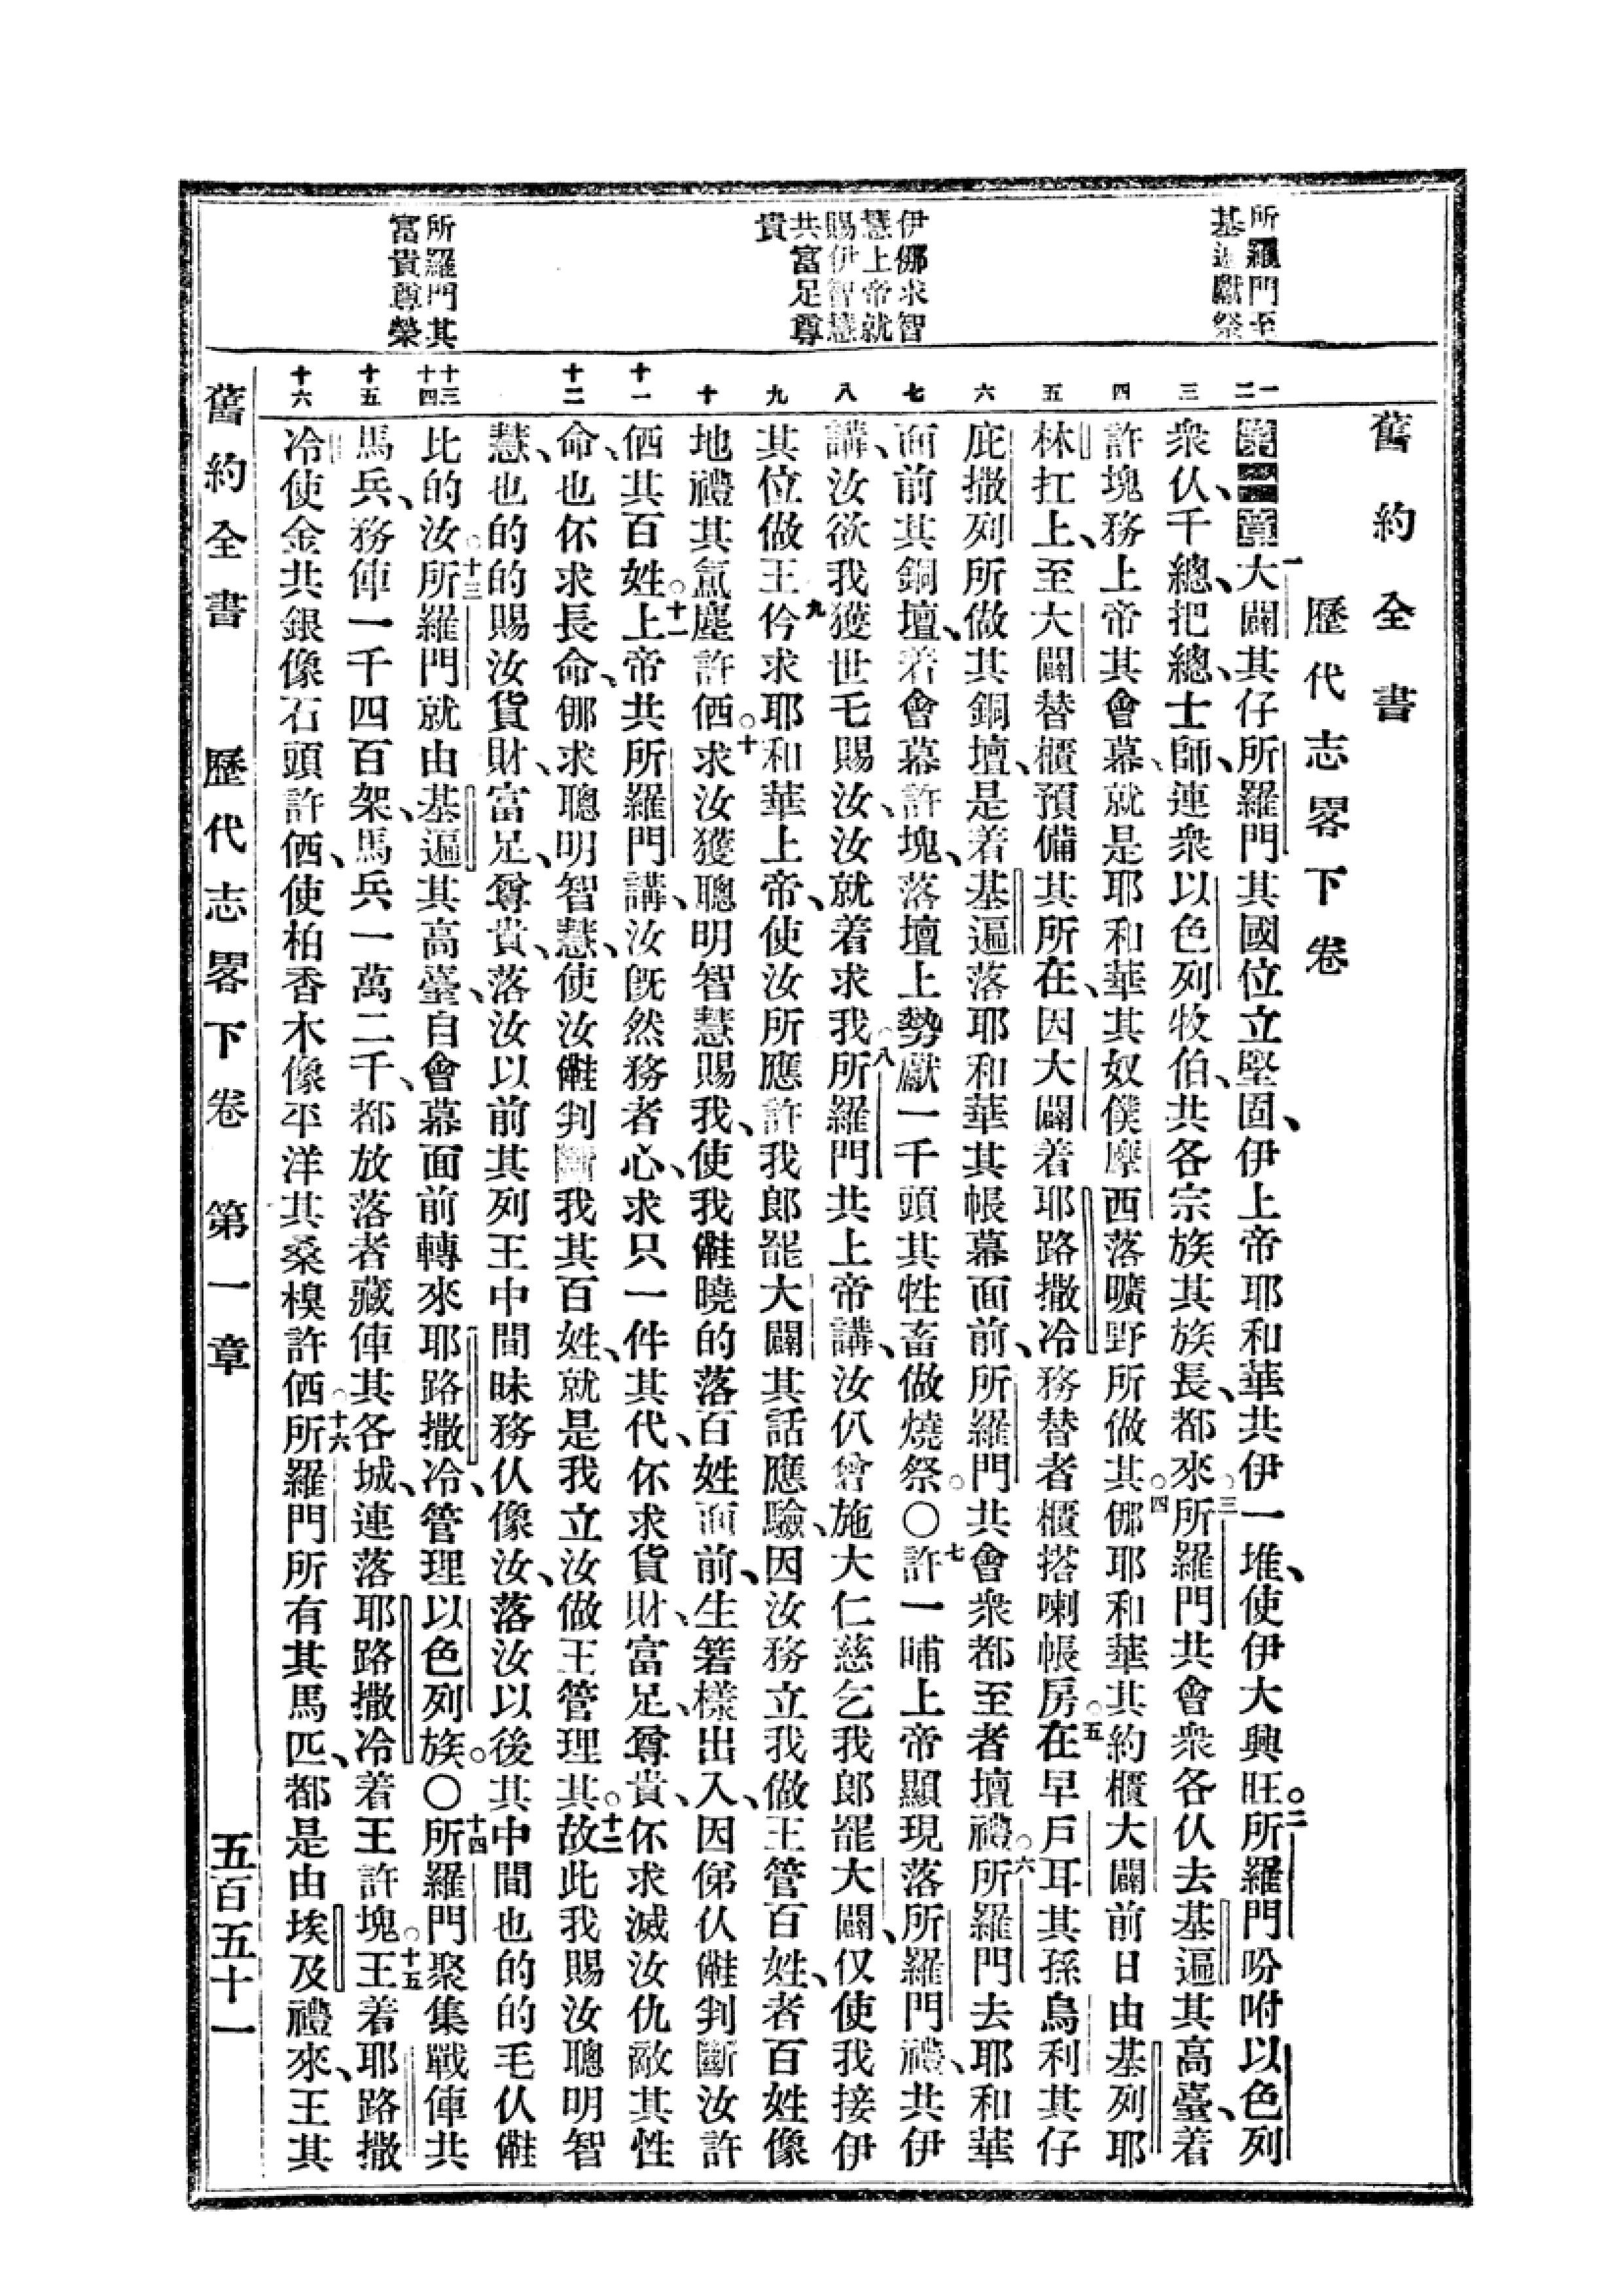 舊約全書
歷代志畧下卷
所羅門至
基遍獻祭
伊㑚求智
慧上帝就
賜伊智慧
共富足尊
貴
所羅門其
富貴尊榮
一
二
三
四
五
六
七
八
九
十
十一
十二
十三
十四
十五
十六
第一章一大闢其仔、所羅門其國位立堅固、伊上帝耶和華共伊一堆、使伊大興旺。二所羅門吩咐以色列
衆仈、千總、把總、士師、連衆以色列牧伯、共各宗族其族長、都來。三所羅門共會衆各仈去基遍其高臺、着
許塊務上帝其會幕、就是耶和華其奴僕摩西落曠野所做其。四㑚耶和華其約櫃大闢前日由基列耶
林扛上、至大闢替櫃預備其所在、因大闢着耶路撒冷務替者櫃搭喇帳房。五在早戶耳其孫烏利其仔
庇撒列所做其銅壇、是着基遍落耶和華其帳幕面前、所羅門共會衆都至者壇禮。六所羅門去耶和華
面前其銅壇、着會幕許塊、落壇上勢獻一千頭其牲畜做燒祭。〇七許一晡上帝顯現落所羅門禮、共伊
講、汝欲我獲世乇賜汝、汝就着求我。八所羅門共上帝講、汝仈曾施大仁慈乞我郎罷大闢、仅使我接伊
其位做王。九仱求耶和華上帝、使汝所應許我郎罷大闢其話應驗、因汝務立我做王管百姓、者百姓像
地禮其氲塵許㐌。十求汝獲聰明智慧賜我、使我𠆧曉的落百姓面前、生箬樣出入、因俤仈𠆧判斷汝許
㐌其百姓。十一上帝共所羅門講、汝旣然務者心、求只一件其代、伓求貨財、富足、尊貴、伓求滅汝仇敵其性
命、也伓求長命、㑚求聰明智慧、使汝𠆧判斷我其百姓、就是我立汝做王管理其。十二故此我賜汝聰明智
慧、也的的賜汝貨財、富足、尊貴、落汝以前其列王中間昧務仈像汝、落汝以後其中間也的的毛仈𠆧
比的汝。十三所羅門就由基遍其高臺、自會幕面前轉來耶路撒冷、管理以色列族。〇十四所羅門聚集戰俥共
馬兵、務俥一千四百架、馬兵一萬二千、都放落者藏俥其各城、連落耶路撒冷着王許塊。十五王着耶路撒
冷使金共銀像石頭許㐌、使柏香木像平洋其桑模許㐌。十六所羅門所有其馬匹、都是由埃及禮來、王其
舊約全書　歷代志畧下卷　第一章　五百五十一